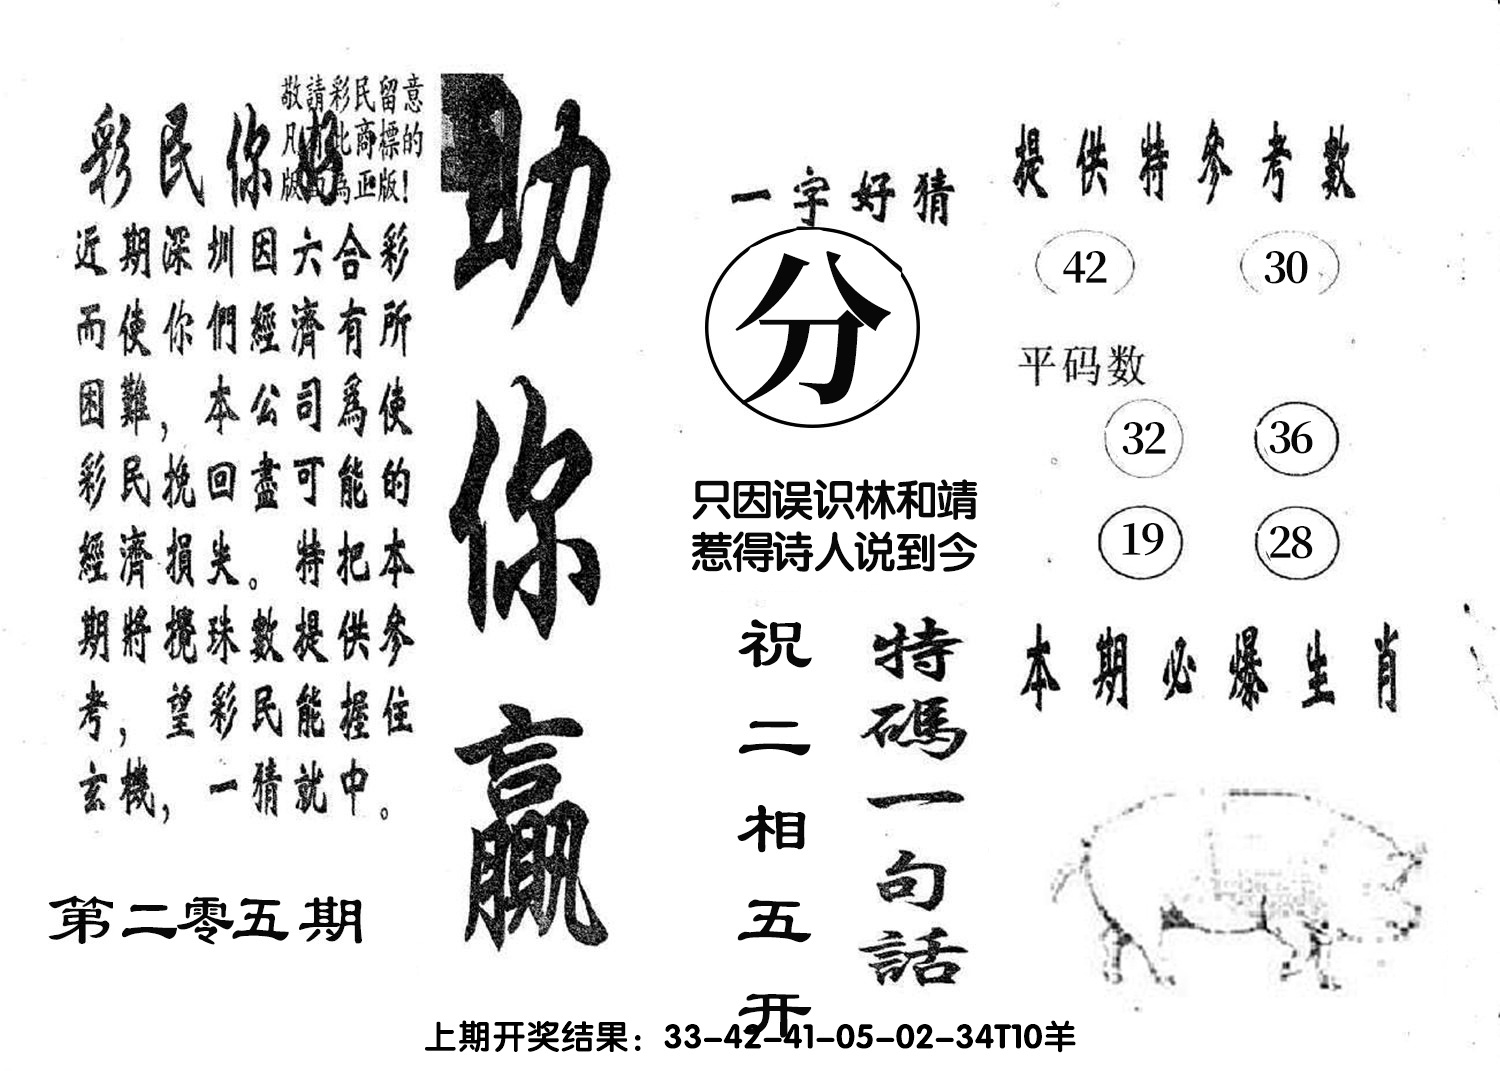 敬請彩民留意
凡有此商標的
版面為正版!
彩民你好
近期深圳因六合彩
而使你們經濟有所
困難，本公司爲使
彩民挽回盡可能的
經濟損失。特把本
期將攪珠數提供參
考，望彩民能握住
玄機，一猜就中。
第二零五期
助你贏
一字好猜
分
只因误识林和靖
惹得诗人说到今
特碼一句話
祝二相五开
提供特參考數
42 30
平码数
32 36
19 28
本期必爆生肖
上期开奖结果：33-42-41-05-02-34T10羊